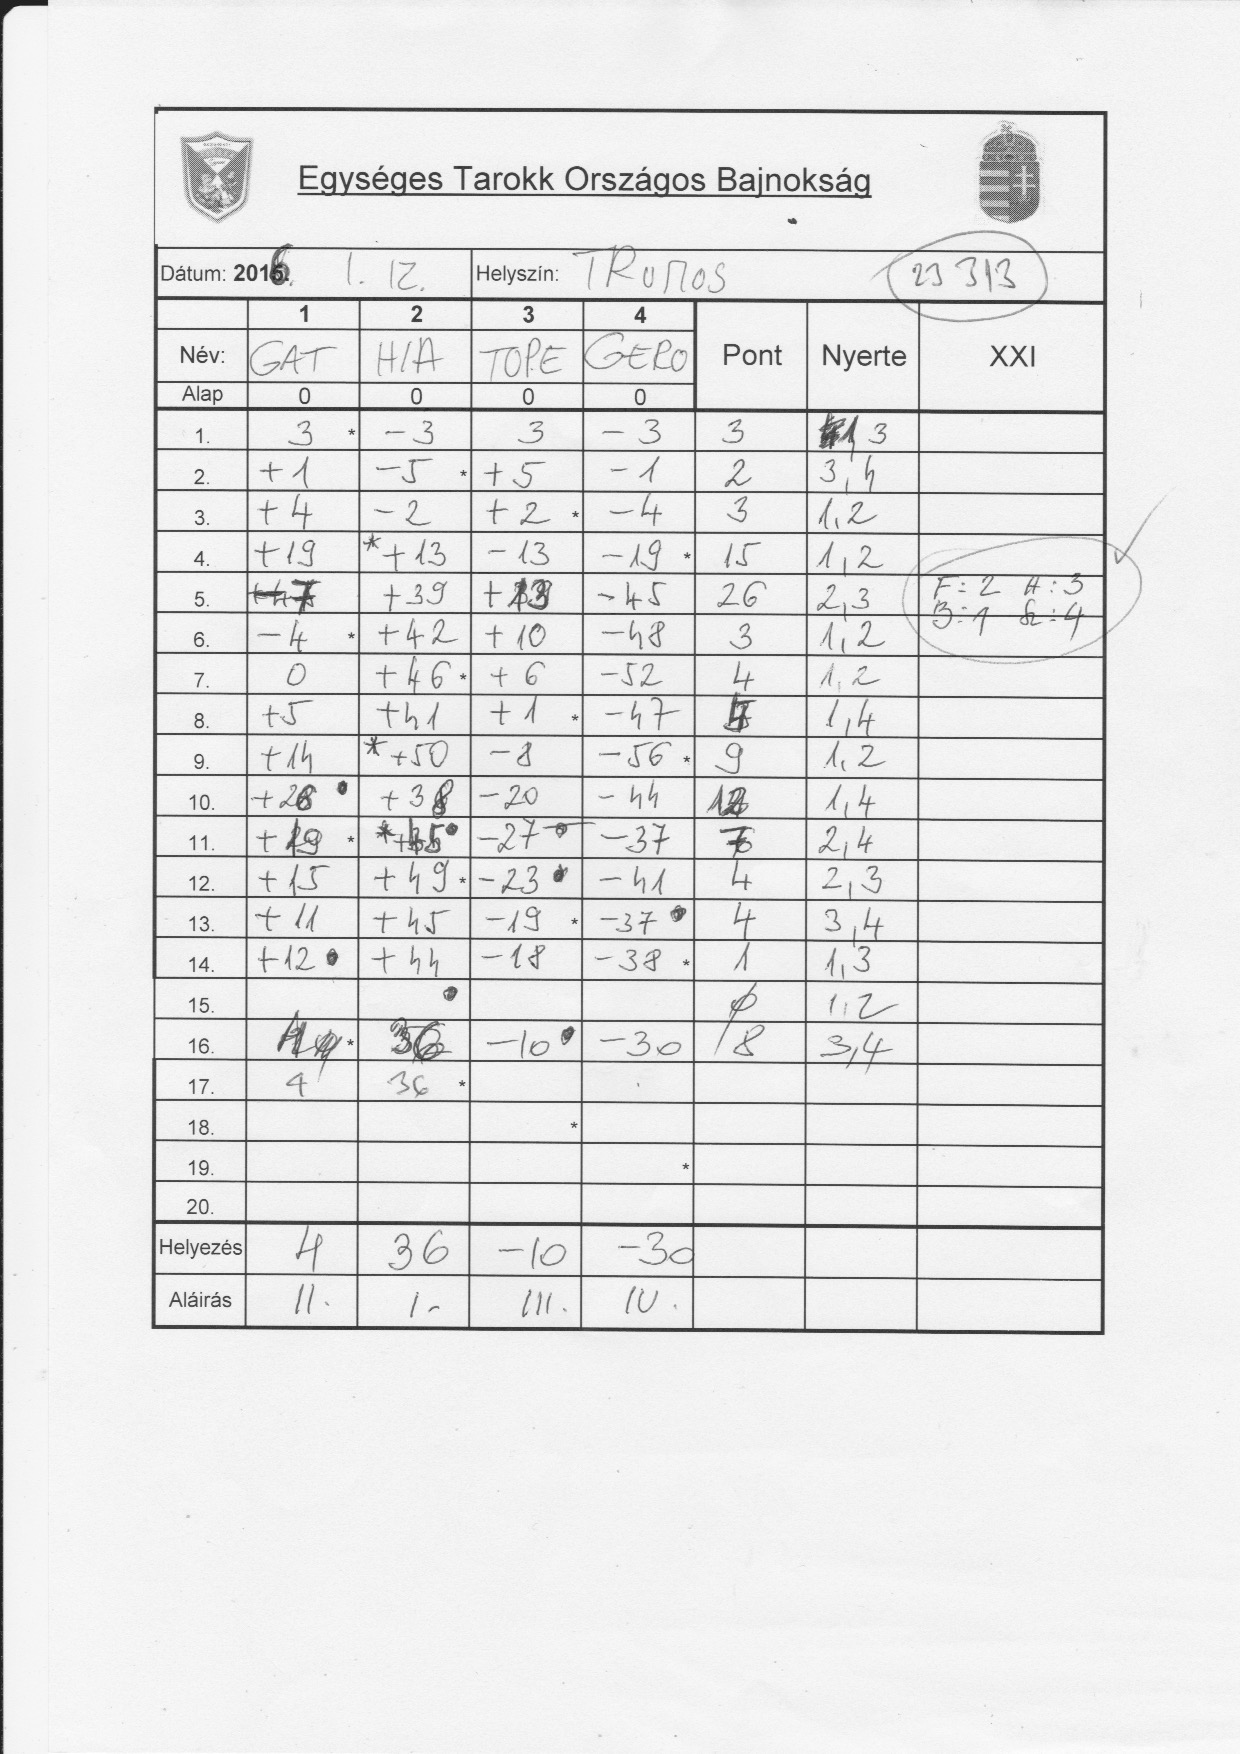 Egységes Tarokk Országos Bajnokság
Dátum: 2016. 1. 12. Helyszín: TRUMOS 23 313
1 2 3 4
Név: GAT H/A TOPE GERO Pont Nyerte XXI
Alap 0 0 0 0
1. 3 * -3 3 -3 3 1, 3
2. +1 -5 * +5 -1 2 3,4
3. +4 -2 +2 * -4 3 1,2
4. +19 *+13 -13 -19 * 15 1,2
5. -7 +39 +13 -45 26 2,3 F:2 A:3
B:1 &:4
6. -4 * +42 +10 -48 3 1,2
7. 0 +46 * +6 -52 4 1,2
8. +5 +41 +1 * -47 5 1,4
9. +14 *+50 -8 -56 * 9 1,2
10. +26 +38 -20 -44 12 1,4
11. +19 * *+45 -27 -37 7 2,4
12. +15 +49 * -23 -41 4 2,3
13. +11 +45 -19 * -37 4 3,4
14. +12 +44 -18 -38 * 1 1,3
15. ø 1,2
16. * 36 -10 -30 8 3,4
17. 4 36 *
18. *
19. *
20.
Helyezés 4 36 -10 -30
Aláirás II. I. III. IV.